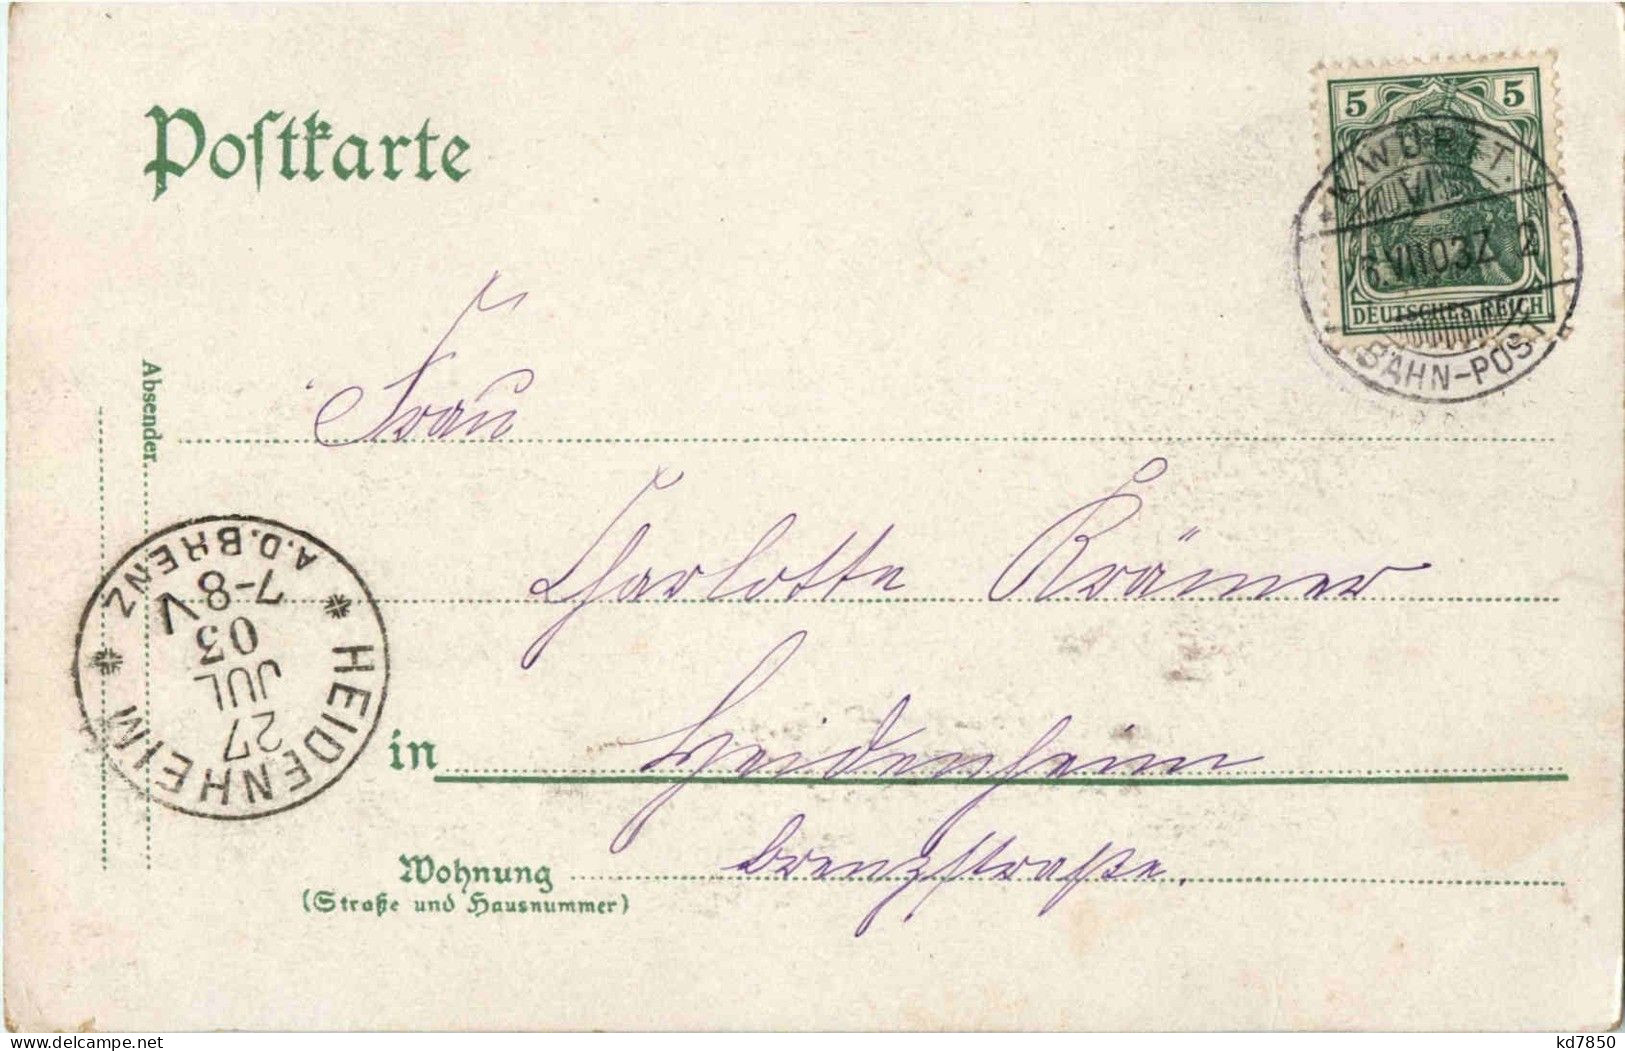 Postkarte
5 5
DEUTSCHES REICH
K. WÜRTT.
VI
6.VII03Z 2
BAHN-POST
Absender.
Frau
Charlotte Krämer
in Heidenheim
Wohnung Brenzstraße.
(Straße und Hausnummer)
HEIDENHEIM
A.D.BRENZ
27
JUL
03
7-8V
kd7850